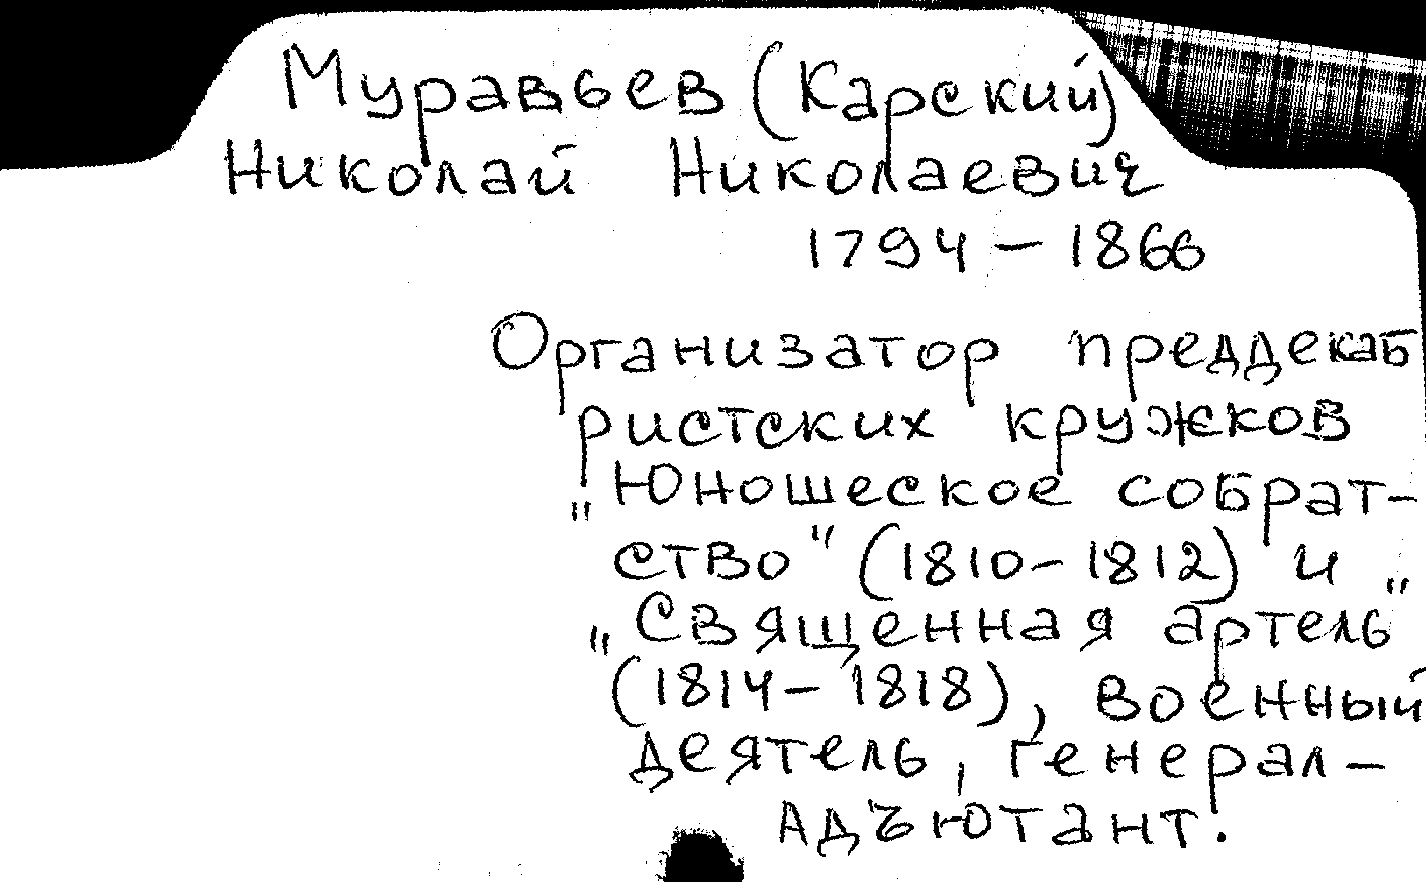 Муравьев (Карский)
Николай Николаевич
1794 – 1866
Организатор преддекаб
ристских кружков
"Юношеское собрат-
ство" (1810-1812) и
"Священная артель"
(1814-1818), военный
деятель, генерал-
адъютант.